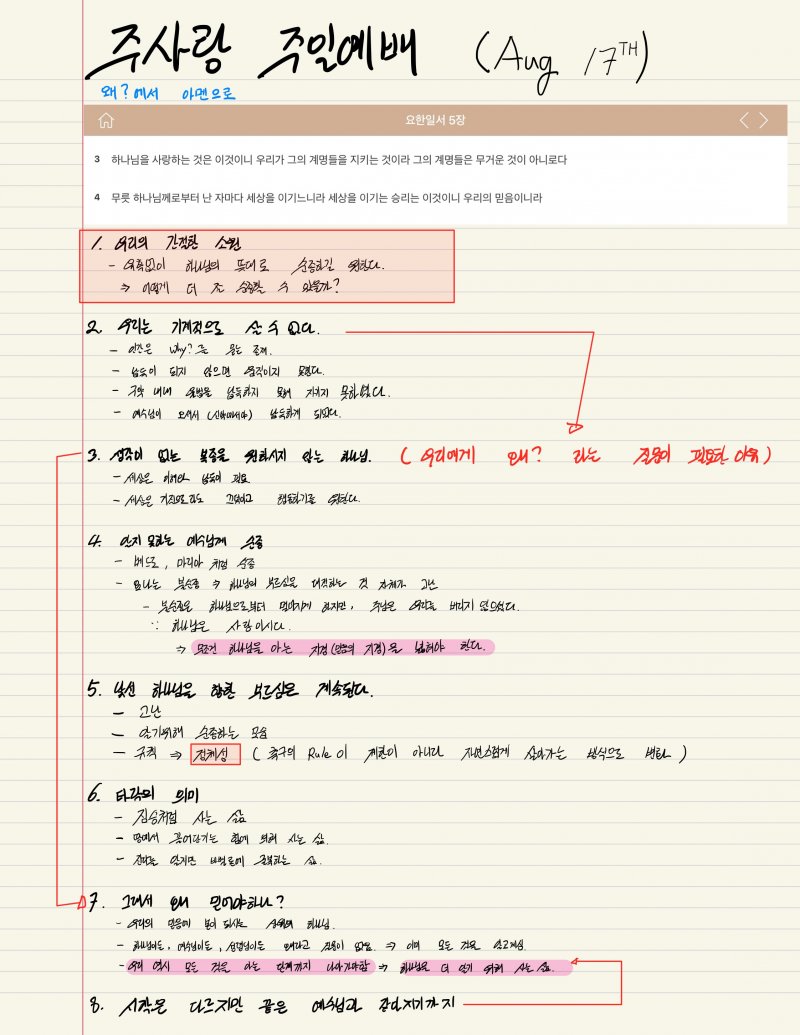 주사랑 주일예배 (Aug 17TH)
왜?에서 아멘으로
요한일서 5장
3 하나님을 사랑하는 것은 이것이니 우리가 그의 계명들을 지키는 것이라 그의 계명들은 무거운 것이 아니로다
4 무릇 하나님께로부터 난 자마다 세상을 이기느니라 세상을 이기는 승리는 이것이니 우리의 믿음이니라
1. 우리의 간절한 소원
- 하나님의 뜻대로 순종하길 원한다.
⇒ 어떻게 더 잘 순종할 수 있을까?
2. 우리는 기계적으로 살 수 없다.
- 인간은 Why?를 묻는 존재.
- 납득이 되지 않으면 움직이지 못한다.
- 구약 내내 율법을 납득하지 못해 지키지 못하였다.
- 예수님이 오셔서 납득하게 되었다.
3. 생각이 없는 복종을 원하시지 않는 하나님. (우리에게 왜? 라는 질문이 필요한 이유)
- 세상은 납득이 필요.
- 세상은 행동하기를 원한다.
4. 알지 못하는 예수님께 순종
- 베드로, 마리아 처럼 순종
- 요나는 불순종 ⇒ 하나님의 부르심을 대적하는 것 자체가 고난
- 불순종은 하나님으로부터 멀어지게 하지만, 주님은 요나를 버리지 않으셨다.
∵ 하나님은 사랑이시다.
⇒ 무조건 하나님을 아는 지경(믿음의 지경)을 넓혀야 한다.
5. 낯선 하나님을 향한 부르심은 계속된다.
- 고난
- 알기위해 순종하는 모습
- 규칙 ⇒ 정체성 (축구의 Rule이 제한이 아니라 자연스럽게 살아가는 방식으로 변화)
6. 타락의 의미
- 짐승처럼 사는 삶
- 땅에서 끌어당기는 힘에 의해 사는 삶.
- 굴복하는 삶.
7. 그래서 왜 믿어야하나?
- 우리의 믿음에 답이 되시는 하나님.
- 하나님도, 예수님이든, 성령님이든 왜라고 질문이 없음. ⇒ 이미 모든 것을 알고계심.
- 우리 역시 모든 것을 아는 단계까지 나아가야함 ⇒ 하나님을 더 알기 위해 사는 삶.
8. 시작은 다르지만 끝은 예수님과 같아지기까지